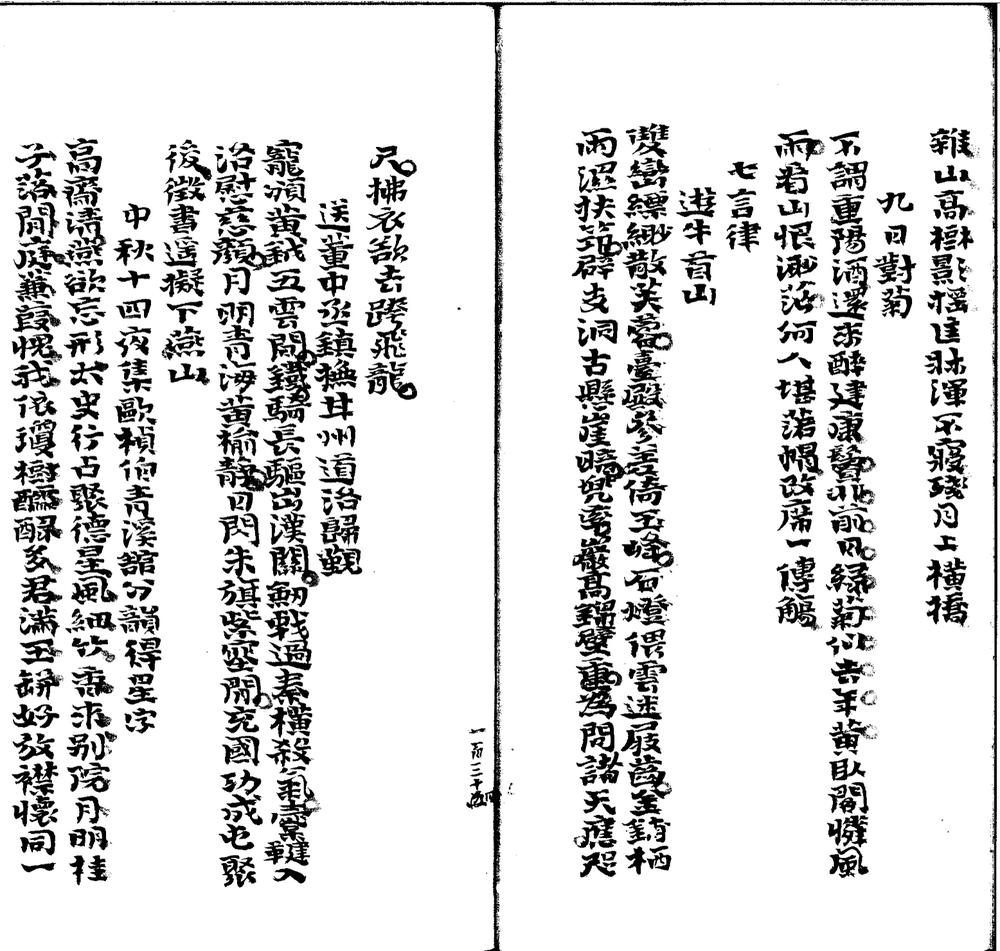 雜山高樹影搖佳牀渾不寢殘月上橫橋
九日對菊
不謂重陽酒還來醉建康鬢非前日綠菊似去年黃臥閣憐風
雨看山恨渺茫何人堪落帽改席一傳觴
七言律
遊牛首山
雙巒縹緲散芙蓉臺殿參差倚玉峰石燈偎雲迷屐齒金銷栖
雨濕扶筇辟支洞古懸崖暗兜率巖高錯壁重為問諸天應咫
尺拂衣欲去躋飛龍
送董中丞鎮撫甘州道洛歸覲
寵頒黃鉞五雲間鐵騎長驅出漢關劍戟過秦橫殺氣櫜鞬入
洛慰慈顏月明青海黃榆靜日閃朱旗紫塞閒充國功成屯聚
後徵書遥擬下燕山
中秋十四夜集歐楨伯青溪館分韻得星字
高齋清讌欲忘形太史行占聚德星風細竹香來别院月明桂
子落閒庭蒹葭愧我依瓊樹醽醁多君滿玉缾好放襟懷同一
一百二十